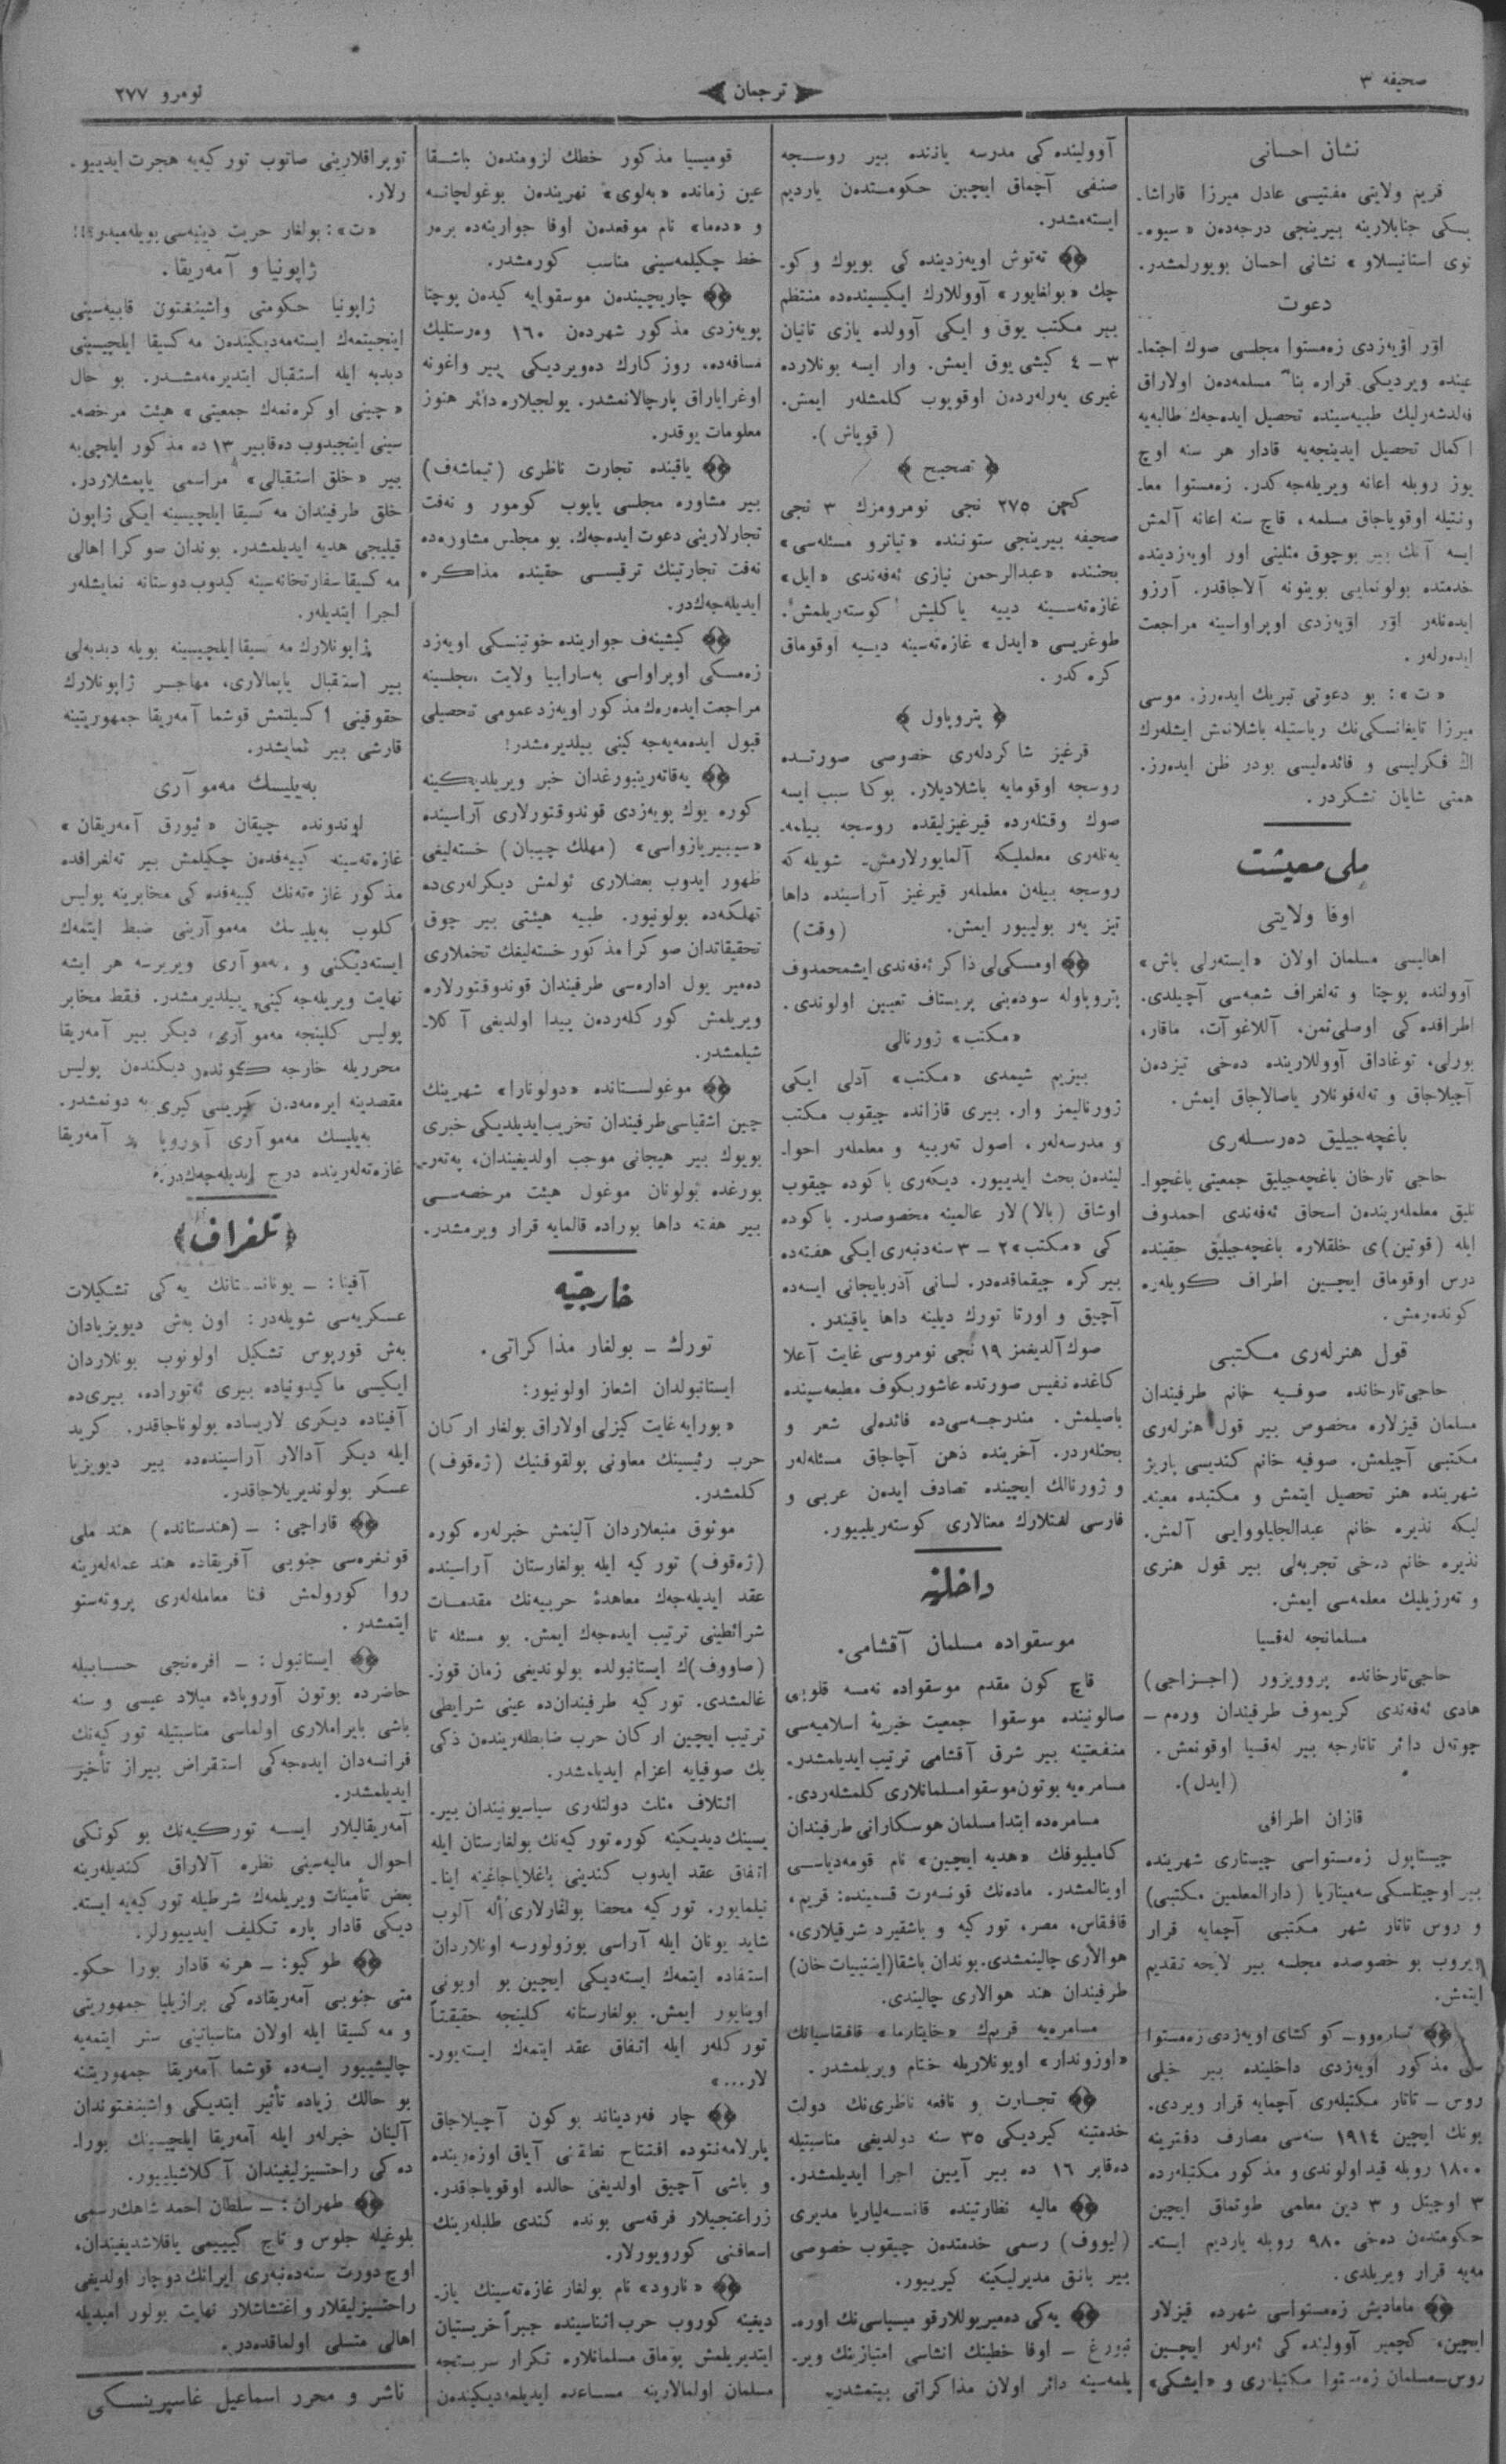 صحيفه ٣
ترجمان
نومرو ٢٧٧
نشان احسانى
قريم ولايتى مفتيسى عادل ميرزا قاراشا-
يسكى جنابلارينه بيرينجى درجه‌دن «سيوه-
توى استانيسلاو» نشانى احسان بويورلمشدر.
دعوت
اۆر اۆيه‌زدى زه‌مستوا مجلسى صوك اجتما-
عينده ويرديكى قراره بناءً مسلمه‌دن اولاراق
فلدشه‌رليك طبيه‌سينده تحصيل ايده‌جه‌ك طالبه‌يه
اكمال تحصيل ايدينجه‌يه قادار هر سنه اوچ
يوز روبله اعانه ويريله‌جه‌كدر. زه‌مستوا معا-
ونتيله اوقوياجاق مسلمه، قاچ سنه اعانه آلمش
ايسه آنك بير بوچوق مثلينى اور اويه‌زدينده
خدمتده بولونمايى بوينونه آلاجاقدر. آرزو
ايده‌نلر اۆر اۆيه‌زدى اوپراواسينه مراجعت
ايده‌رلر.
«ت»: بو دعوتى تبريك ايده‌رز. موسى
ميرزا تايغانسكى‌نك رياستيله باشلانمش ايشلرك
اڭ فكرليسى و فائده‌ليسى بودر ظن ايده‌رز.
همتى شايان تشكردر.
ملى معيشت
اوفا ولايتى
اهاليسى مسلمان اولان «ايسته‌رلى باش»
آوولنده پوچتا و ته‌لغراف شعبه‌سى آچيلدى.
اطرافده‌كى اوصلى‌تمن، آللاغوآت، ماقار،
بورلى، توغاداق آووللارينده ده‌خى تيزدن
آچيلاجاق و ته‌له‌فونلار ياصالاجاق ايمش.
باغچه‌جيليق ده‌رسله‌رى
حاجى تارخان باغچه‌جيليق جمعيتى باغچوا-
نليق معلملرينده‌ن اسحاق ئه‌فه‌ندى احمدوف
ايله (قوتين)ى خلقلاره باغچه‌جيليق حقينده
درس اوقوماق ايچين اطراف كويلره
كونده‌رمش.
قول هنرله‌رى مكتبى
حاجى‌تارخانده صوفيه خانم طرفيندان
مسلمان قيزلاره مخصوص بير قول هنرله‌رى
مكتبى آچيلمش. صوفيه خانم كنديسى پاريژ
شهرينده هنر تحصيل ايتمش و مكتبده معينه-
ليكه نذيره خانم عبدالجليلووايى آلمش.
نذيره خانم دخى تجربه‌لى بير قول هنرى
و ته‌رزيليك معلمه‌سى ايمش.
مسلمانجه له‌قسيا
حاجى‌تارخانده پروويزور (اجزاجى)
هادى ئه‌فه‌ندى كريموف طرفيندان ورم -
چوته‌ل دائر تاتارجه بير له‌قسيا اوقونمش.
(ايدل).
قازان اطرافى
چيستاپول زه‌مستواسى چيستاى شهرينده
بير اوچيتلسكى سه‌مينارييا (دارالمعلمين مكتبى)
و روس تاتار شهر مكتبى آچمايه قرار
ويروب بو خصوصده مجلسه بير لايحه تقديم
ايتمش.
ساره‌وو-كوكشاى اويه‌زدى زه‌مستوا
سى مذكور اويه‌زدى داخلينده بير خيلى
روس - تاتار مكتبله‌رى آچمايه قرار ويردى.
بونك ايچين ١٩١٤ سنه‌سى مصارف دفترينه
١٨٠٠ روبله قيد اولوندى و مذكور مكتبلرده
٣ اوچيتل و ٣ دين معلمى طوتماق ايچين
حكومتدن ده‌خى ٩٨٠ روبله يارديم ايسته-
مه‌يه قرار ويريلدى.
ماماديش زه‌مستواسى شهرده قيزلار
ايچين، كچمير آوولنده‌كى ئه‌رلر ايچين
روس-مسلمان زه‌مستوا مكتبلرى و «ايشكى»
آوولينده‌كى مدرسه يانده بير روسجه
صنفى آچماق ايچين حكومتدن يارديم
ايسته‌مشدر.
ته‌توش اويه‌زدينده‌كى بويوك و كو-
چك «بولغايور» آووللارك ايكيسينده‌ده منتظم
بير مكتب يوق و ايكى آوولده يازى تانيان
٣-٤ كيشى يوق ايمش. وار ايسه بونلارده
غيرى يه‌رلردن اوقويوب كلمشلر ايمش.
(قوياش).
تصحيح
كچن ٢٧٥ نجى نومرومزك ٣ نجى
صحيفه بيرينجى ستوننده «تياترو مسئله‌سى»
بحثنده «عبدالرحمن نيازى ئه‌فه‌ندى «ايل»
غازه‌ته‌سينه دييه ياكليش كوسته‌ريلمش.
طوغريسى «ايدل» غازه‌ته‌سينه دييه اوقوماق
كره‌كدر.
پتروپاول
قرغيز شاكردله‌رى خصوصى صورتده
روسجه اوقومايه باشلاديلار. بوكا سبب ايسه
صوك وقتلرده قيرغيزليقده روسجه بيلمه-
يه‌نله‌رى معلمليكه آلمايورلارمش. شويله‌كه
روسجه بيلن معلملر قيرغيز آراسينده داها
تيز ير بولييور ايمش. (وقت)
اومسكى‌لى ذاكر ئه‌فه‌ندى ايشمحمدوف
پتروپاوله سوده‌بنى پريستاف تعيين اولوندى.
«مكتب» ژورنالى
بيزيم شيمدى «مكتب» آدلى ايكى
ژورناليمز وار. بيرى قازانده چيقوب مكتب
و مدرسه‌لر، اصول تربيه و معلملر احوا-
ليندن بحث ايدييور. ديكه‌رى باكوده چيقوب
اوشاق (بالا)لار عالمينه مخصوصدر. باكوده
كى «مكتب» ٢ - ٣ سنه‌دنبه‌رى ايكى هفته‌ده
بير كره چيقماقده‌در. لسانى آذربايجانى ايسه‌ده
آچيق و اورتا تورك ديلينه داها ياقيندر.
صوك آلديغمز ١٩ نجى نومروسى غايت آعلا
كاغده نفيس صورتده عاشوربكوف مطبعه‌سينده
باصيلمش. مندرجه‌سى‌ده فائده‌لى شعر و
بحثلردر. آخرينده ذهن آچاجاق مسئله‌لر
و ژورنالك ايچينده تصادف ايدن عربى و
فارسى لغتلارك معنالارى كوسته‌ريلييور.
داخليه
موسقواده مسلمان آقشامى.
قاچ كون مقدم موسقواده نه‌مسه قلوبى
صالونينده موسقوا جمعيت خيريۀ اسلاميه‌سى
منفعتينه بير شرق آقشامى ترتيب ايديلمشدر.
مسامره‌يه بوتون موسقوا مسلمانلارى كلمشلردى.
مسامره‌ده ابتدا مسلمان هوسكارانى طرفيندان
كاميليوفك «هديه ايچين» نام قومه‌دياسى
اوينالمشدر. ماده‌نك قونسه‌رت قسمينده: قريم،
قافقاس، مصر، توركيه و باشقيرد شرقيلارى،
هوالارى چالينمشدى. بوندان باشقا (اينييات خان)
طرفيندان هند هوالارى چاليندى.
مسامره‌يه قريمك «خايتارما» قافقاسيانك
«اوزوندار» اويونلاريله ختام ويريلمشدر.
تجارت و نافعه ناظرى‌نك دولت
خدمتينه كيرديكى ٣٥ سنه دولديغى مناسبتيله
ده‌قابر ١٦ ده بير آيين اجرا ايديلمشدر.
ماليه نظارتينده قانسه‌لياريا مديرى
(ليووف) رسمى خدمتدن چيقوب خصوصى
بير بانق مديرليكينه كيرييور.
يه‌كى ده‌ميريوللارقوميسياسى‌نك اوره-
نبورغ - اوفا خطينك انشاسى امتيازينك وير-
يلمه‌سينه دائر اولان مذاكراتى بيتمشدر.
قوميسيا مذكور خطك لزومندن باشقا
عين زمانده «به‌لوى» نهريندن بوغولچانه
و «ده‌ما» نام موقعدن اوفا جوارينه‌ده برر
خط چكيلمه‌سينى مناسب كورمشدر.
چاريچيندن موسقوايه كيدن پوچتا
پويه‌زدى مذكور شهردن ١٦٠ وه‌رستليك
مسافه‌ده، روزكارك ده‌ويرديكى بير واغونه
اوغراياراق پارچالانمشدر. يولجيلاره دائر هنوز
معلومات يوقدر.
ياقينده تجارت ناظرى (تيماشه‌ف)
بير مشاوره مجلسى ياپوب كومور و نه‌فت
تجارلارينى دعوت ايده‌جه‌ك. بو مجلس مشاوره‌ده
نه‌فت تجارتينك ترقيسى حقينده مذاكره
ايديله‌جه‌كدر.
كيشينه‌ف جوارينده خوتينسكى اويه‌زد
زه‌مسكى اوپراواسى به‌سارابيا ولايت مجلسينه
مراجعت ايده‌رك مذكور اويه‌زد عمومى تحصيلى
قبول ايده‌مه‌يه‌جه‌كينى بيلديرمشدر!
يه‌قاته‌رينبورغدان خبر ويريلديكينه
كوره يوك پويه‌زدى قوندوقتورلارى آراسينده
«سيبيريازواسى» (مهلك چيبان) خسته‌ليغى
ظهور ايدوب بعضلارى ئولمش ديكرله‌رى‌ده
تهلكه‌ده بولونيور. طبيه هيئتى بير چوق
تحقيقاتدان صوكرا مذكور خسته‌ليغك تخملارى
ده‌مير يول اداره‌سى طرفيندان قوندوقتورلاره
ويريلمش كوركلردن پيدا اولديغى آكلا-
شيلمشدر.
موغولستانده «دولونارا» شهرينك
چين اشقياسى طرفيندان تخريب ايديلديكى خبرى
بويوك بير هيجانى موجب اولديغيندان، په‌ته‌ر-
بورغده بولونان موغول هيئت مرخصه‌سى
بير هفته داها بوراده قالمايه قرار ويرمشدر.
خارجيه
تورك - بولغار مذاكراتى.
ايستانبولدان اشعار اولونيور:
«بورايه غايت كيزلى اولاراق بولغار اركان
حرب رئيسينك معاونى پولقوفنيك (ژه‌قوف)
كلمشدر.
موثوق منبعلاردان آلينمش خبرلره كوره
(ژه‌قوف) توركيه ايله بولغارستان آراسينده
عقد ايديله‌جه‌ك معاهدۀ حربيه‌نك مقدمات
شرائطينى ترتيب ايده‌جه‌ك ايمش. بو مسئله تا
(صاووف)ك ايستانبولده بولونديغى زمان قوز-
غالمشدى. توركيه طرفيندان‌ده عينى شرايطى
ترتيب ايچين اركان حرب ضابطلرينده‌ن ذكى
بك صوفيايه اعزام ايديلمشدر.
ائتلاف مثلث دولتله‌رى سياسيونيندان بير-
يسينك ديديكينه كوره توركيه‌نك بولغارستان ايله
اتفاق عقد ايدوب كندينى باغلاياجاغينه اينا-
نيلمايور. توركيه محضا بولغارلارى أله آلوب
شايد يونان ايله آراسى بوزولورسه اونلاردان
استفاده ايتمك ايسته‌ديكى ايچين بو اويونى
اوينايور ايمش. بولغارستانه كلينجه حقيقتاً
توركلر ايله اتفاق عقد ايتمك ايسته‌يور-
لار...»
چار فه‌رديناند بو كون آچيلاجاق
پارلامه‌نتوده افتتاح نطقنى آياق اوزه‌رينده
و باشى آچيق اولديغى حالده اوقوياجاقدر.
زراعتجيلار فرقه‌سى بونده كندى طلبلرينك
اسعافنى كورويورلار.
«نارود» نام بولغار غازه‌ته‌سينك ياز-
ديغينه كوروب حرب اثناسينده جبراً خريستيان
ايتديريلمش پوماق مسلمانلاره تكرار سربستجه
مسلمان اولمالارينه مساعده ايديلمه‌ديكيندن
توپراقلارينى صاتوب توركيه‌يه هجرت ايدييو-
رلار.
«ت»: بولغار حريت دينيه‌سى بويله‌ميدر؟!!
ژاپونيا و آمه‌ريقا.
ژاپونيا حكومتى واشينغتون قابينه‌سينى
اينجيتمك ايسته‌مه‌ديكيندن مه‌كسيقا ايلچيسينى
دبدبه ايله استقبال ايتديرمه‌مشدر. بو حال
«چينى اوكره‌نمك جمعيتى» هيئت مرخصه-
سينى اينجيدوب ده‌قابير ١٣ ده مذكور ايلچى‌يه
بير «خلق استقبالى» مراسمى ياپمشلاردر.
خلق طرفيندان مه‌كسيقا ايلچيسينه ايكى ژاپون
قيليچى هديه ايديلمشدر. بوندان صوكرا اهالى
مه‌كسيقا سفارتخانه‌سينه كيدوب دوستانه نمايشلر
اجرا ايتديلر.
ژاپونلارك مه‌كسيقا ايلچيسينه بويله دبدبه‌لى
بير استقبال ياپمالارى، مهاجر ژاپونلارك
حقوقينى اكسيلتمش قوشما آمه‌ريقا جمهوريتينه
قارشى بير نمايشدر.
به‌يليسك مه‌موآرى
لوندونده چيقان «نيورق آمه‌ريقان»
غازه‌ته‌سينه كييه‌فدن چكيلمش بير ته‌لغرافده
مذكور غازه‌ته‌نك كييه‌فده‌كى مخابرينه پوليس
كلوب به‌يليسك مه‌موآرينى ضبط ايتمك
ايسته‌ديكنى و مه‌موآرى ويريرسه هر ايشه
نهايت ويريله‌جه‌كينى بيلديرمشدر. فقط مخابر
پوليس كلينجه مه‌موآرى ديكر بير آمه‌ريقا
محرريله خارجه كونده‌رديكندن پوليس
مقصدينه ايره‌مه‌دن كيريسى كيرى‌يه دونمشدر.
به‌يليسك مه‌موآرى آوروپا و آمه‌ريقا
غازه‌ته‌لرينده درج ايديله‌جه‌كدر.
تلغراف
آفينا: - يونانستانك يه‌كى تشكيلات
عسكريه‌سى شويله‌در: اون بش ديويزيادان
بش قورپوس تشكيل اولونوب بونلاردان
ايكيسى ماكيدونياده بيرى ئه‌توراده، بيرى‌ده
آفيناده ديكرى لاريساده بولوناجاقدر. كريد
ايله ديكر آدالار آراسينده‌ده بير ديويزيا
عسكر بولونديريلاجاقدر.
قاراچى: - (هندستانده) هند ملى
قونغره‌سى جنوبى آفريقاده هند عمله‌لرينه
روا كورولمش فنا معامله‌له‌رى پروته‌ستو
ايتمشدر.
ايستانبول: - افره‌نجى حسابيله
حاضرده بوتون آوروپاده ميلاد عيسى و سنه
باشى بايراملارى اولماسى مناسبتيله توركيه‌نك
فرانسه‌دان ايده‌جه‌كى استقراض بيراز تأخير
ايديلمشدر.
آمه‌ريقاليلار ايسه توركيه‌نك بو كونكى
احوال ماليه‌سينى نظره آلاراق كنديلرينه
بعض تأمينات ويريلمك شرطيله توركيه‌يه ايسته-
ديكى قادار پاره تكليف ايدييورلر.
طوكيو: - هرنه قادار بورا حكو-
متى جنوبى آمه‌ريقاده‌كى برازيليا جمهوريتى
و مه‌كسيقا ايله اولان مناسباتينى ستر ايتمه‌يه
چاليشييور ايسه‌ده قوشما آمه‌ريقا جمهوريتنه
بو حالك زياده تأثير ايتديكى واشينغتوندان
آلينان خبرلر ايله آمه‌ريقا ايلچيسينك بورا-
ده‌كى راحتسيزليغيندان آكلاشيلييور.
طهران: - سلطان احمد شاهك رسمى
بلوغيله جلوس و تاج كييمى ياقلاشديغيندان،
اوچ دورت سنه‌دنبه‌رى ايرانك دوچار اولديغى
راحتسيزليقلار و اغتشاشلار نهايت بولور اميديله
اهالى متسلى اولماقده‌در.
ناشر و محرر اسماعيل غاسپرينسكى